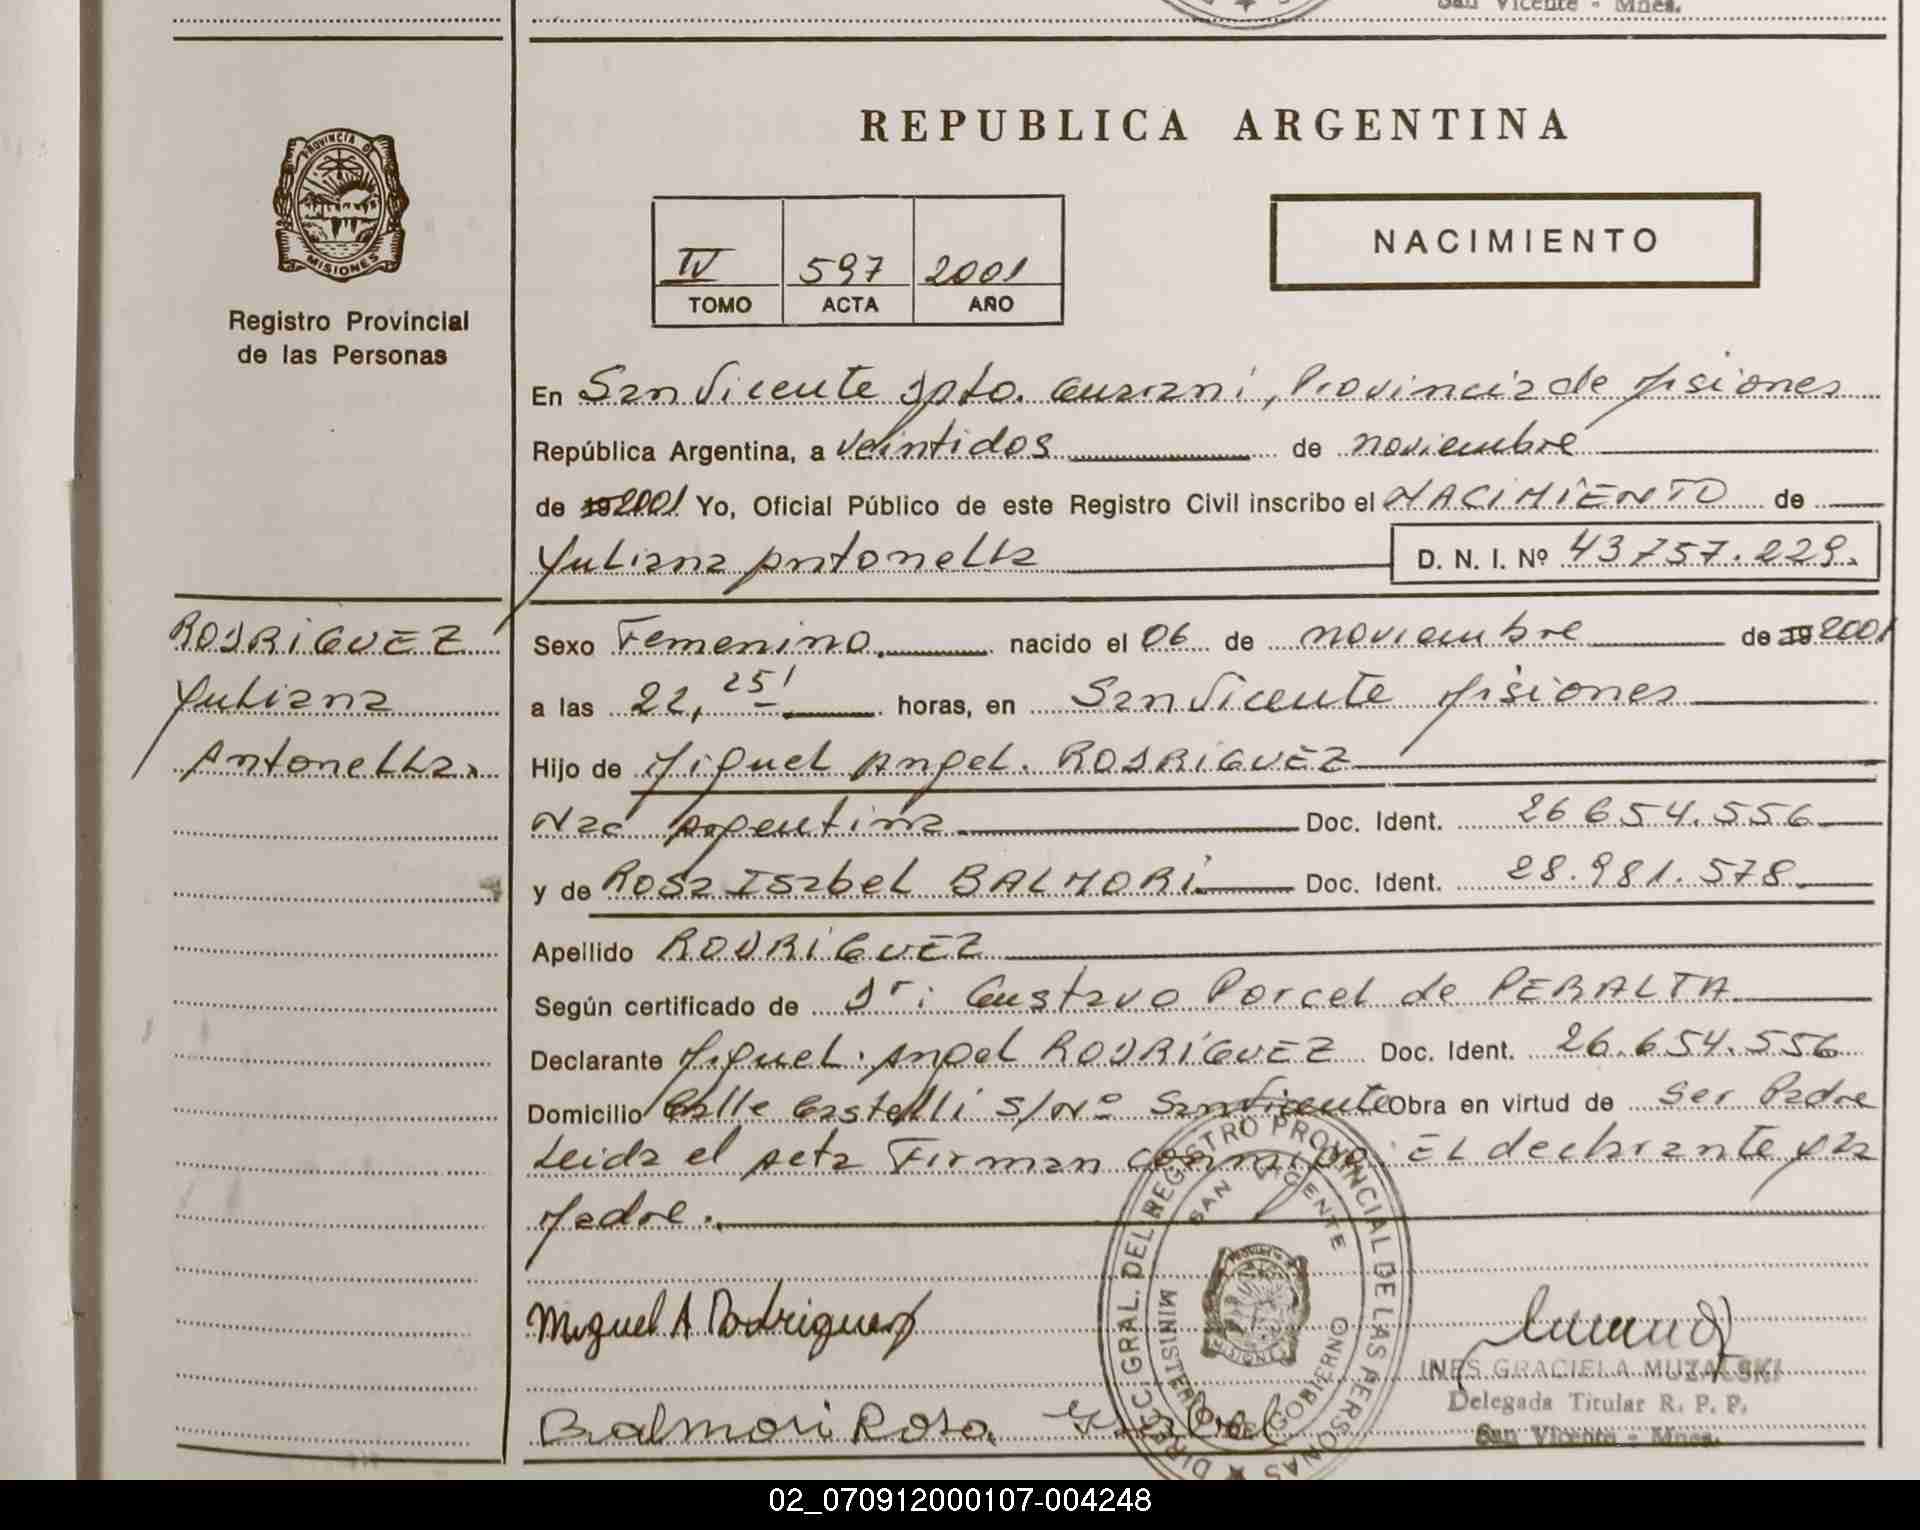 San Vicente - Mnes.
REPUBLICA ARGENTINA
PROVINCIA DE
MISIONES
Registro Provincial
de las Personas
IV 597 2001
TOMO ACTA AÑO
NACIMIENTO
En San Vicente Dpto. Guarani, Provincia de Misiones
República Argentina, a veintidos de noviembre
de 19 2001 Yo, Oficial Público de este Registro Civil inscribo el NACIMIENTO de
Yuliana Antonella D. N. I. Nº 43757.229.
RODRIGUEZ
Yuliana
Antonella.
Sexo Femenino. nacido el 06 de noviembre de 19 2001
a las 22, 25' horas, en San Vicente Misiones
Hijo de Miguel Angel. RODRIGUEZ
Nac Argentina Doc. Ident. 26 654.556
y de Rosa Isabel BALMORI Doc. Ident. 28.981.578
Apellido RODRIGUEZ
Según certificado de Dr: Gustavo Porcel de PERALTA
Declarante Miguel. Angel RODRIGUEZ Doc. Ident. 26.654.556
Domicilio Calle Castelli s/Nº San Vicente Obra en virtud de ser Padre
Leida el acta Firman conmigo: EL declarante y la
Madre.
Miguel A Rodriguez
Balmori Rosa Isabel
DIRECC. GRAL. DEL REGISTRO PROVINCIAL DE LAS PERSONAS
SAN VICENTE
MINISTERIO DE GOBIERNO
INES GRACIELA MUZALSKI
Delegada Titular R. P. P.
San Vicente - Mnes.
02_070912000107-004248